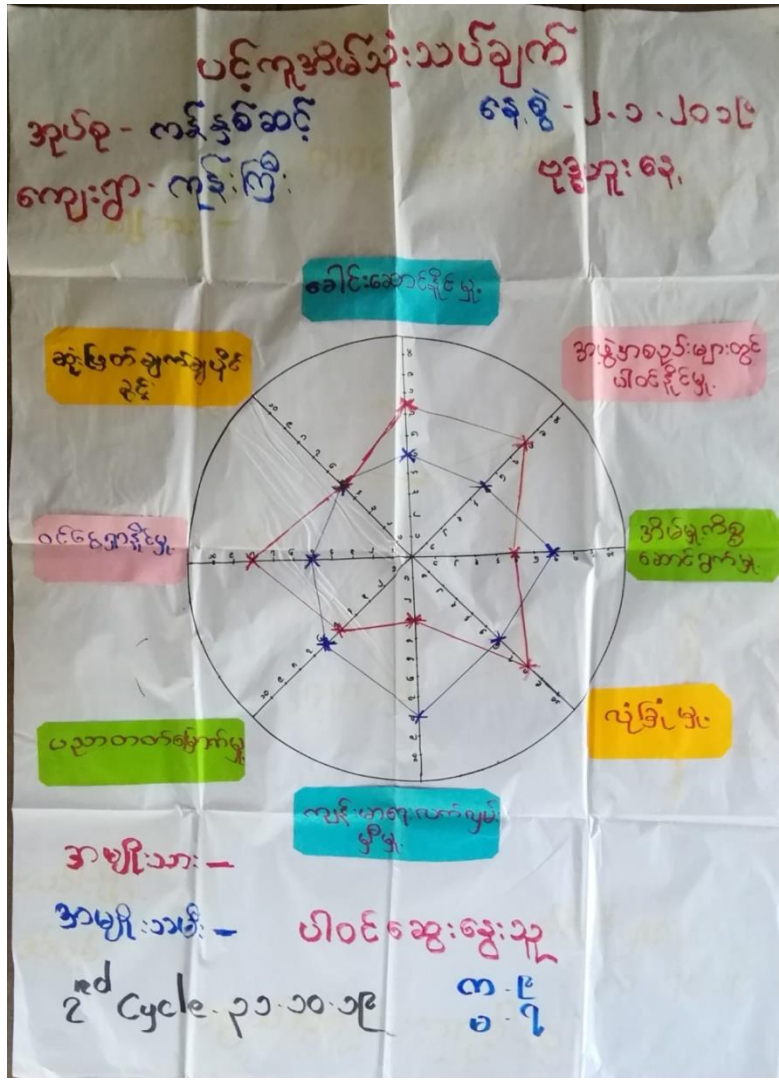 ပင့်ကူအိမ်သုံးသပ်ချက်
အုပ်စု - ကန်နှစ်ဆင့်
နေ့စွဲ - ၂.၁.၂၀၁၉
ကျေးရွာ - ကုန်းကြီး
ဗုဒ္ဓဟူးနေ့
ခေါင်းဆောင်နိုင်မှု
ဆုံးဖြတ်ချက်ချပိုင်
ခွင့်
အဖွဲ့အစည်းများတွင်
ပါဝင်နိုင်မှု
ဝင်ငွေရှာနိုင်မှု
အိမ်မှုကိစ္စ
ဆောင်ရွက်မှု
လုံခြုံမှု
ပညာတတ်မြောက်မှု
ကျန်းမာရေးလက်လှမ်း
မှီမှု
အမျိုးသား -
အမျိုးသမီး -
ပါဝင်ဆွေးနွေးသူ
2nd Cycle - ၃၁.၁၀.၁၉
က - ၉
မ - ၇